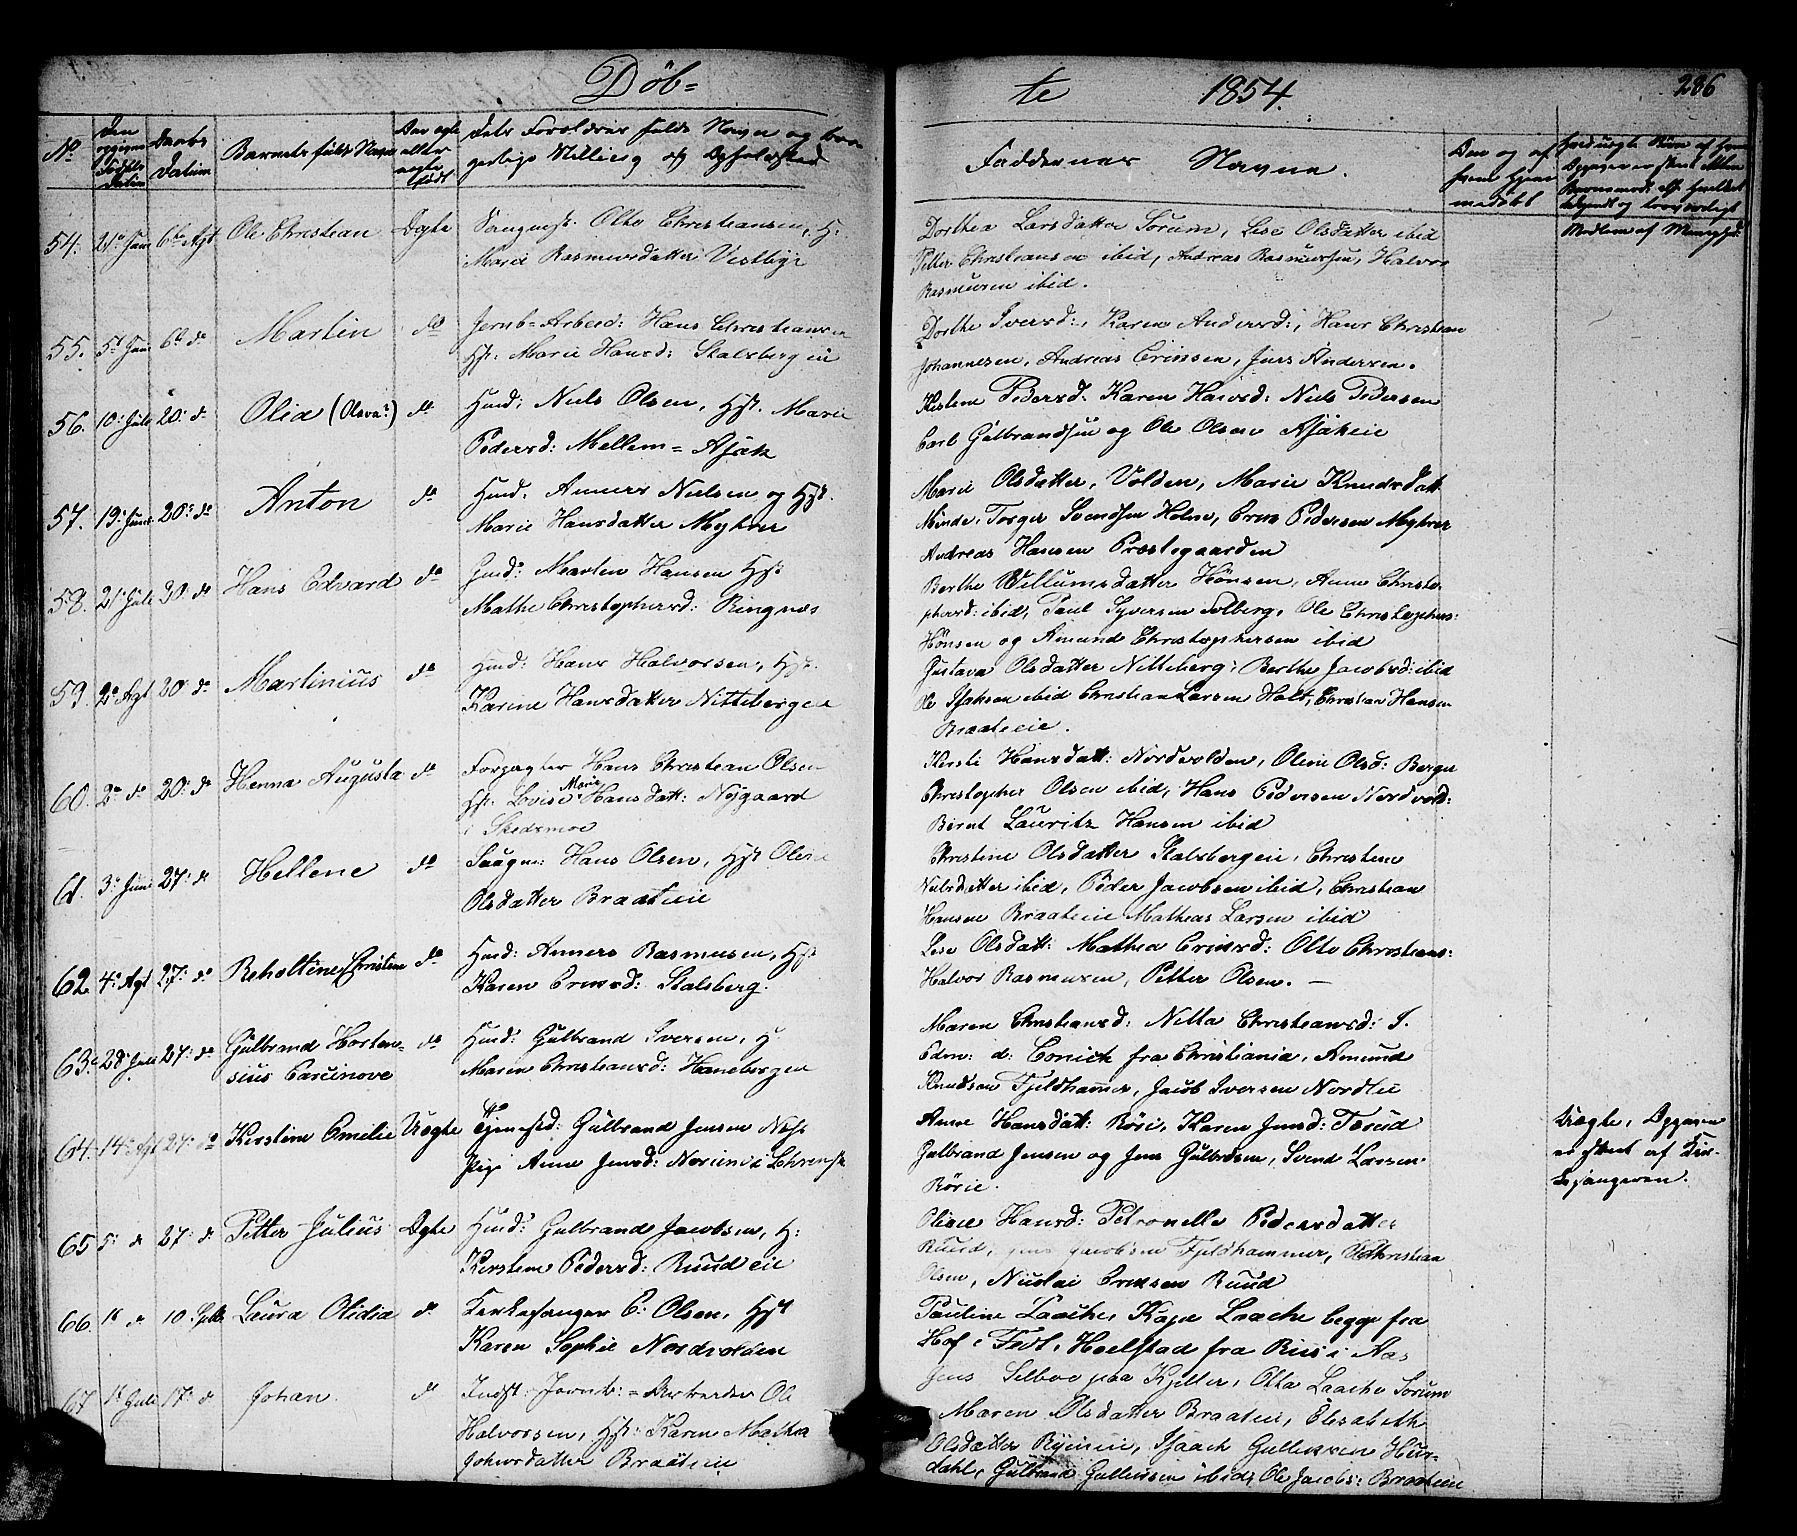 Döb=
te 1854. 286
No
Den opgivne Födsels Datum
Daabs Datum
Barnets fulde Navn
Om ægte eller uægte födt
Dets Forældres fulde Navne og bor-
gerlige Stilling og Opholdssted
Faddernes Navne.
54. 21de Juni 6te Agt Ole Christian Ægte Otto Christiansen, H:
Marie Rasmusdatter Vestbye
Dorthea Larsdatter Sorum, Lise Olsdatter ibid
Petter Christiansen ibid, Andreas Rasmusen, Halvor
Rasmusen ibid.
55. 5t Juni 6t do Martin do Jernb=Arbeid: Hans Christiansen
Hst: Marie Hansd: Stalsbergeie
Dorthe Iversd:, Karen Andersd:, Hans Christian
Johannesen, Andreas Ericssen, Jens Andersen.
56. 10: Juli 20: do Olia (Olava?) do Huusd: Niels Olsen, Hst. Marie
Pedersd: Mellem=Asak
Kistine Pedersd: Karen Halvsd: Niels Pedersen
Carl Gulbrandsen og Ole Olsen Asakeie
57. 19: Juni 20: do Anton do Huusd. Anners Nielsen og Hst.
Marie Hansdatter Myhrer
Marie Olsdatter, Volden, Marie Knudsdatt
Minde, Torger Svendsen Holm, Erik Pedersen Myhrer
Andreas Hansen Præstegaarden
58. 21: Juli 20: do Hans Edvard do Gmd: Martin Hansen Hst:
Mathe Christophersd: Ringnæs
Berthe Willumsdatter Hönsen, Anne Christo-
phersd: ibid, Paul Syversen Solberg, Ole Christophers:
Hönsen og Amund Christophersen ibid
59. 2: Agt 20: do Martinius do Huusd: Hans Halvorsen, Hst.
Karine Hansdatter Nittebergeie
Gustava Olsdatter Nitteberg: Berthe Jacobsd: ibid
Ole Isaksen ibid Christian Larsen Holt, Christian Hansen
Braateeie.
60. 2: do 20: do Henna Augusta do Forpagter Hans Christian Olsen
Hst. Lovise Marie Hansdatt: Nygaard
i Skedsmoe
Kersti Hansdatt: Nordvolden, Oline Olsd: Berger
Christopher Olsen ibid, Hans Pedersen Nordvold:
Bernt Lauritz Hansen ibid
61. 3: Juni 27: do Hellene do Saugm: Hans Olsen, Hst Oline
Olsdatter Braateeie
Christine Olsdatter Stalsbergeie, Christine
Nielsdatter ibid, Peder Jacobsen ibid, Christian
Hansen Braateeie Mathias Larsen ibid
62. 4: Agt 27: do Reholtine Christine do Huusd: Anners Rasmusen, Hst
Karen Ericsd: Stalsberg.
Lise Olsdatt: Mathea Ericsd: Otto Christians:
Halvor Rasmusen, Petter Olsen. —
63. 28: Juli 27: do Gulbrand Horten-
sius Carcinove do Huusd: Gulbrand Iversen, H.
Maren Christiansd: Hanebergeie
Maren Christiansd: Nilla Christiansd: I.
Edm: d: Conick fra Christiania, Amund
Knudsen Fjeldhamer, Jacob Iversen Nordlie
64. 14: Agt 27: do Kirstine Emilie Uægte Tjenestd: Gulbrand Jensen
Pige Anne Jensd:
Anne Hansdatt: Röri, Karen Jensd: Tærud
Gulbrand Jensen og Jens Gulbrdsen, Svend Larsen
Rörie.
Uægte, Opgaven
er skeet af Kir-
kesangeren.
65 5: do 27: do Petter Julius Ægte Huusd: Gulbrand Jacobsen, H:
Kirstine Pedersd: Ruudeie
Olivie Hansd: Petronelle Pedersdatter
Ruud, Jens Jacobsen Fjeldhammer, Christian
Olsen, Nicolai Ericsen Ruud
66. 18 do 10 Sptb Laura Olidia do Kirkesanger C: Olsen, Hst
Karen Sophie Nordvolden
Pauline Laache, Kaja Laache begge fra
Hof i Hoelstad fra Riis i Aas
Jens Selboe paa Kjeller, Otto Laache Sorum
67 18 Juli 17: do Johan. do Indst: Jernb:=Arbeider Ole
Halvorsen, Hst: Karen Mathea
Johnsdatter Braateeie
Maren Olsdatter Braateie, Elisabeth
Olsdatter Isaach Gullichsen Hur-
dahl, Gulbrand Gullicsen ibid, Ole Jacobs: Braateeie